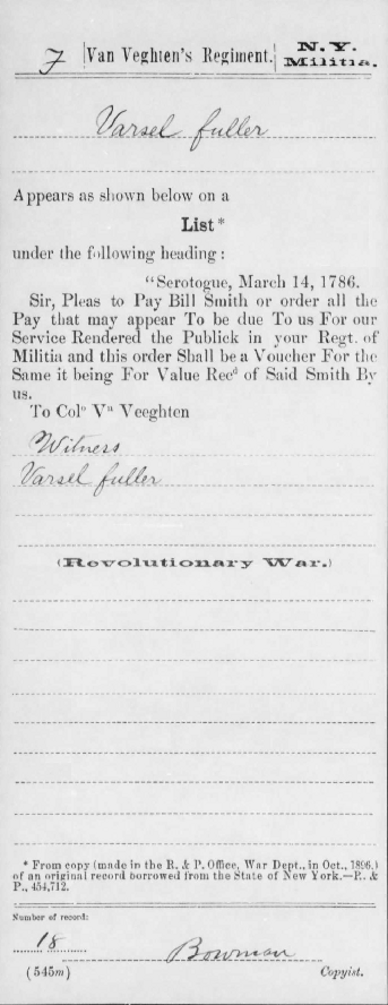 F | Van Veghten's Regiment. | N. Y. Militia.
Varsel fuller
Appears as shown below on a
List*
under the following heading:
"Serotogue, March 14, 1786.
Sir, Pleas to Pay Bill Smith or order all the
Pay that may appear To be due To us For our
Service Rendered the Publick in your Regt. of
Militia and this order Shall be a Voucher For the
Same it being For Value Recd of Said Smith By
us.
To Colo Vn Veeghten
Witness
Varsel fuller
(Revolutionary War.)
* From copy (made in the R. & P. Office, War Dept., in Oct., 1896,)
of an original record borrowed from the State of New York.—R. &
P., 454,712.
Number of record:
18
Bowman
(545m) Copyist.